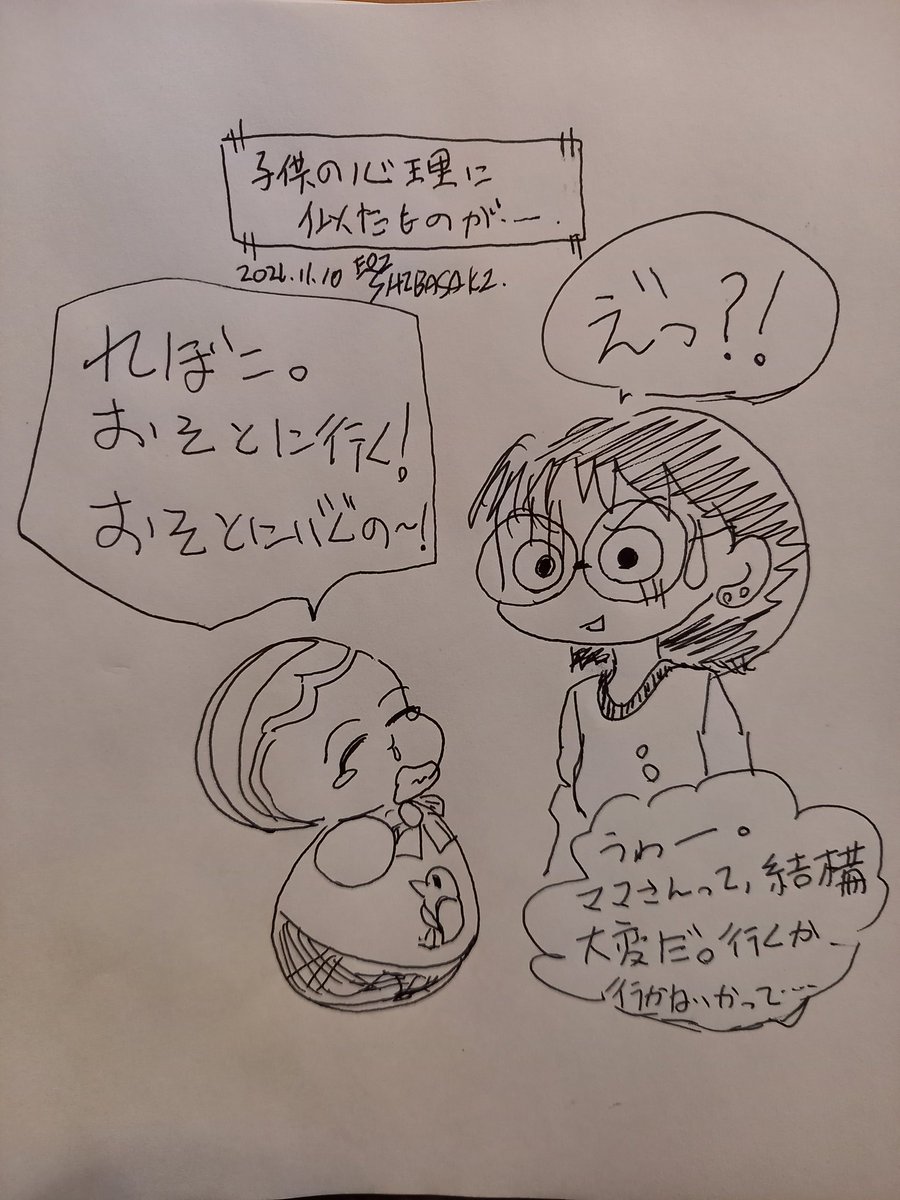 子供の心理に
似たものが…ー.
2021.11.10 EQI
SHIBASAKI.
えっ?!
れぼこ。
おそとに行く!
おそとにバビの〜!
うわー。
ママさんって、結構
大変だ。行くか
行かないかって…